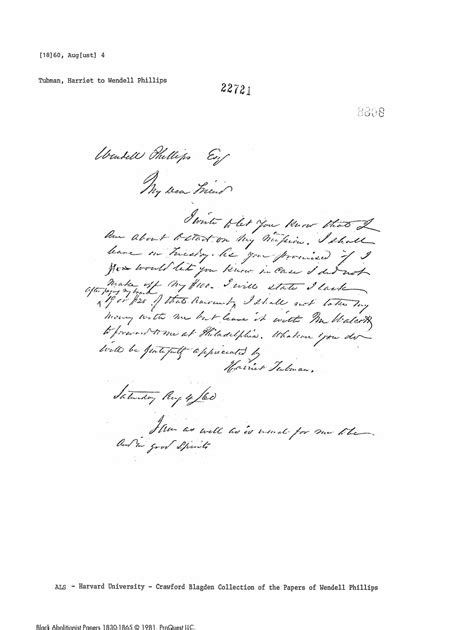 [18]60, Aug[ust] 4
Tubman, Harriet to Wendell Phillips
22721
8808
Wendell Phillips Esq
My dear Friend
I write to let you know that I
am about to start on my mission. I shall
leave on Tuesday. As you promised if I
would let you know in case I did not
make up my $100. I will state I lack
After paying my board
19 or $20 of that amount, I shall not take my
money with me but leave it with Mr Walcott
to forward to me at Philadelphia. Whatever you do
will be gratefully appreciated by
Harriet Tubman.
Saturday Aug 4/60
I am as well as is usual for me to be
And in good Spirits
ALS - Harvard University - Crawford Blagden Collection of the Papers of Wendell Phillips
Black Abolitionist Papers 1830-1865 © 1981 ProQuest LLC.